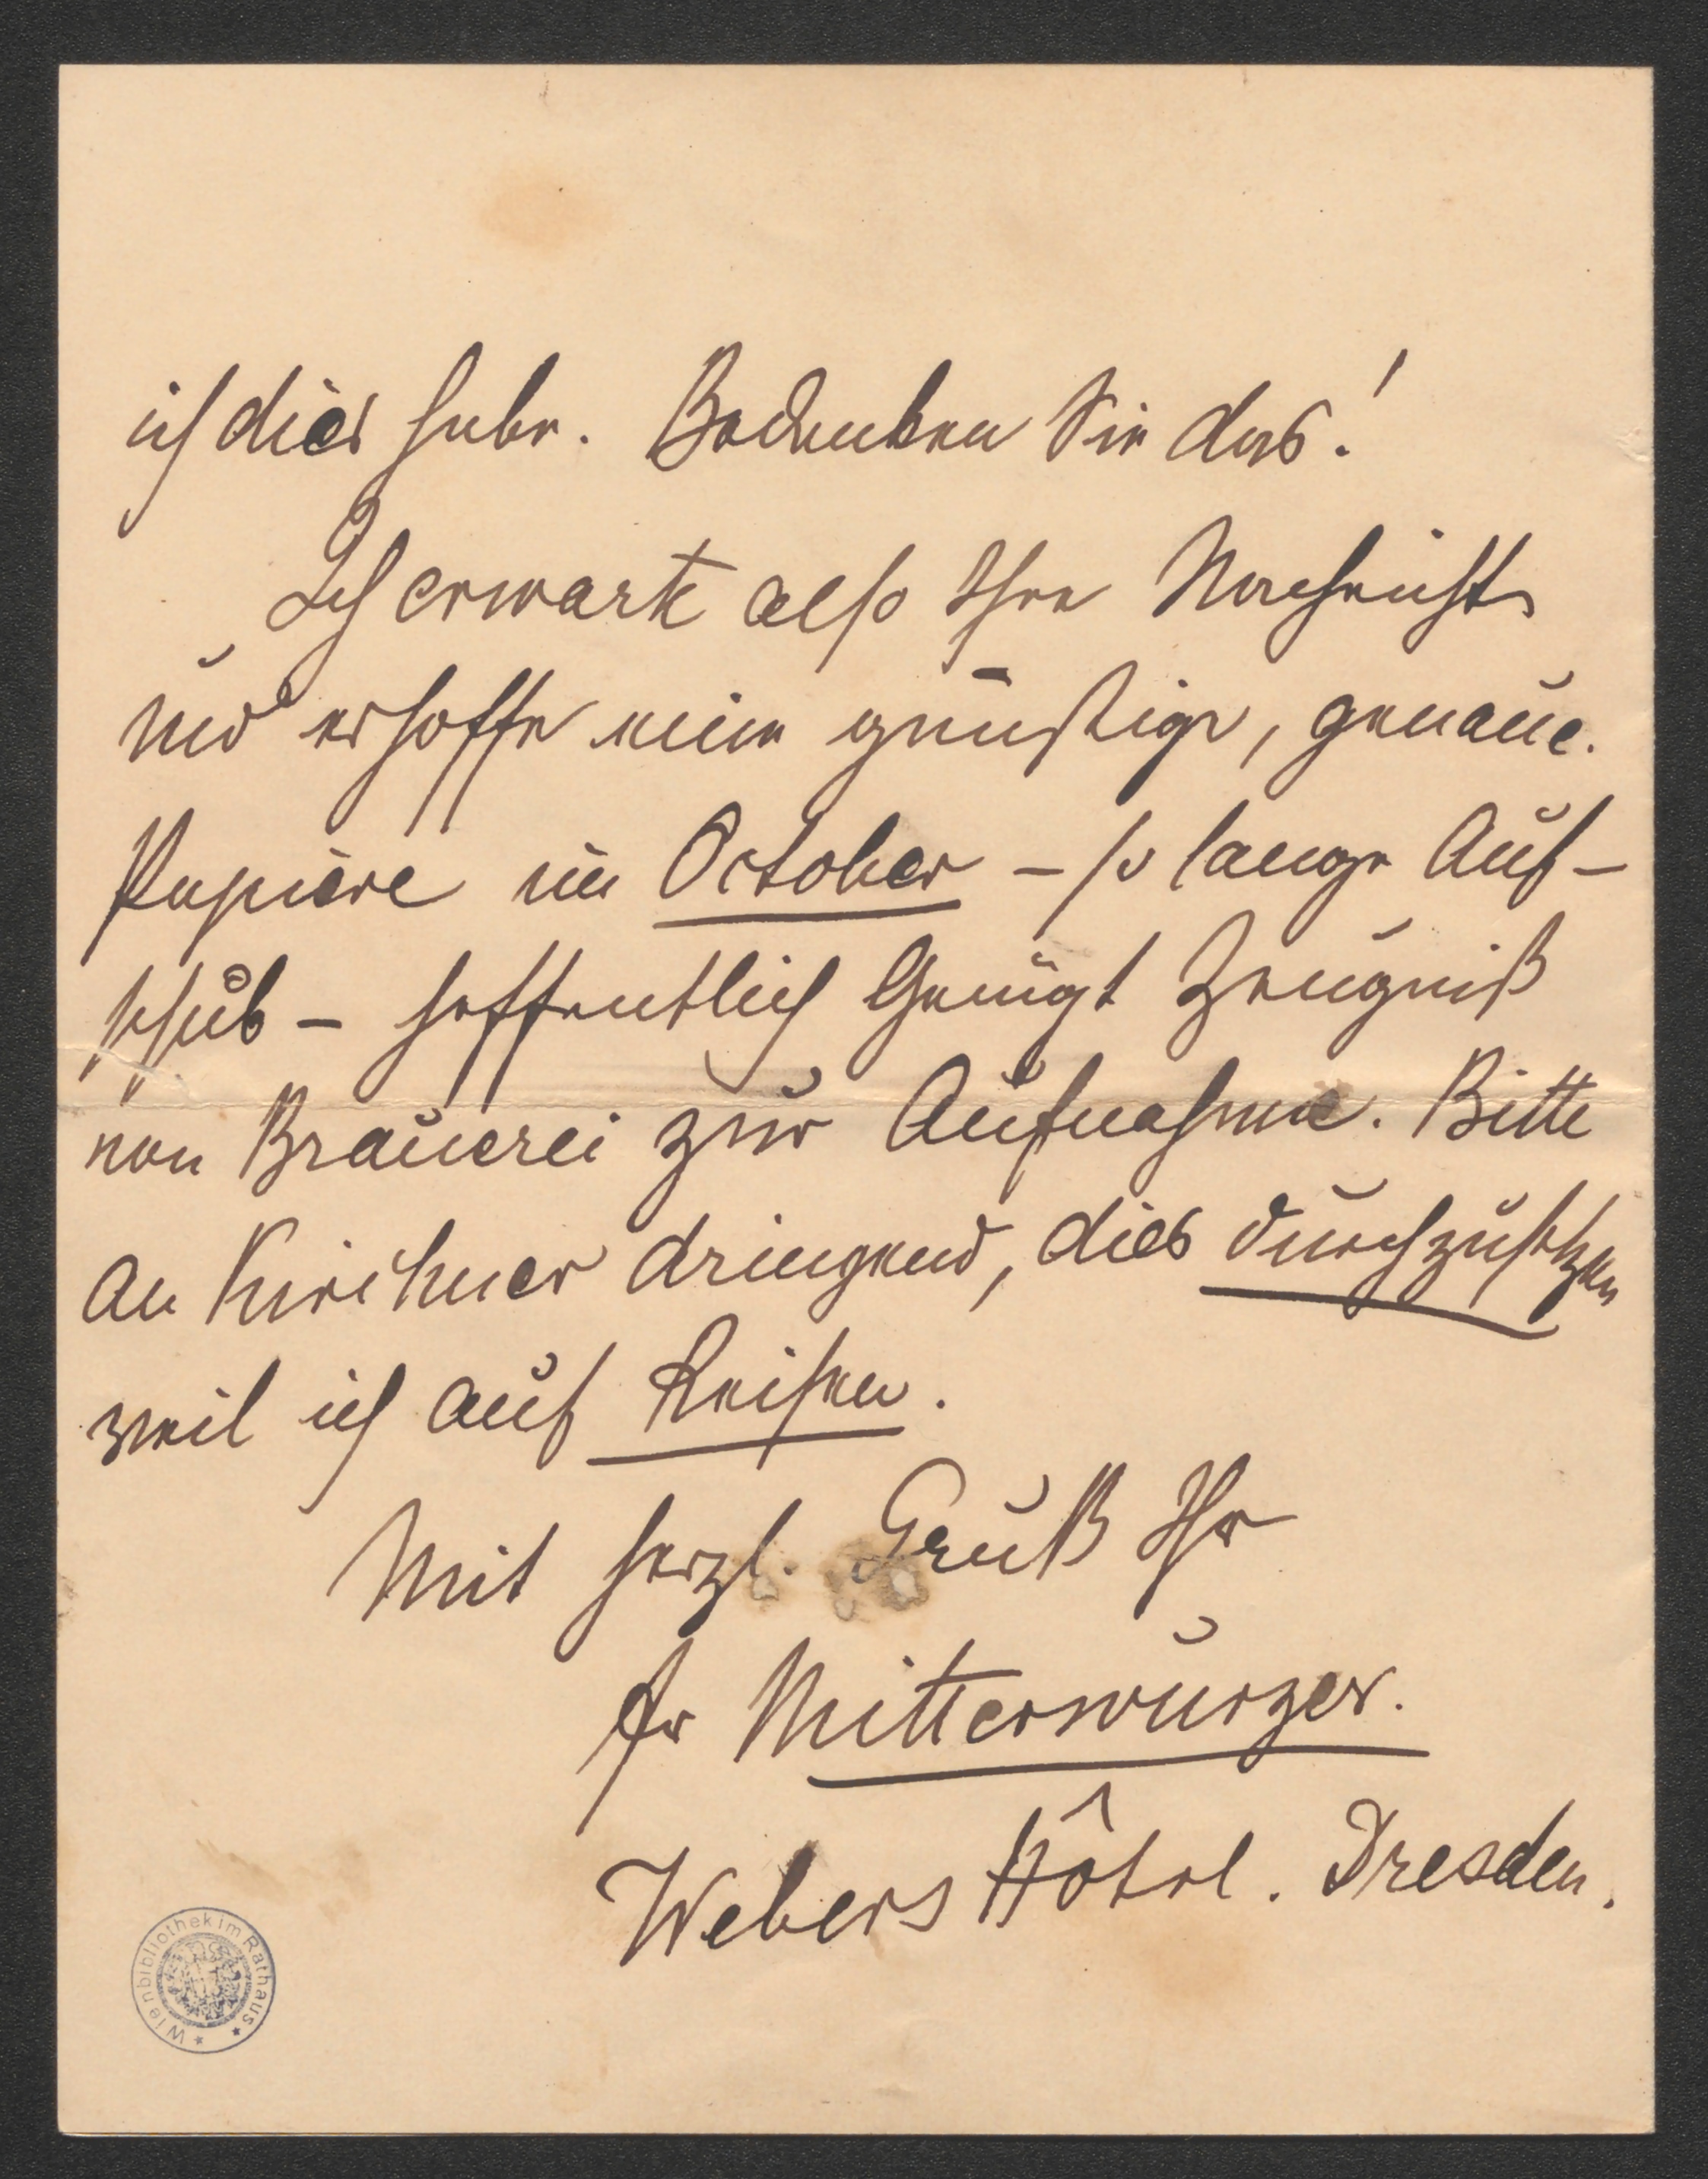 ich dies habe. Bedenken Sie das!
Ich erwarte also Ihre Nachricht
und erhoffe eine günstige, genaue.
Papiere im October – so lange Auf-
schub – hoffentlich Genügt Zeugniß
von Brauerei zur Aufnahme. Bitte
an Kirchner dringend, dies durchzusetzen
weil ich auf Reisen.
Mit herzl. Gruß Ihr
Fr Mitterwurzer.
Webers Hôtel. Dresden.
Wienbibliothek im Rathaus